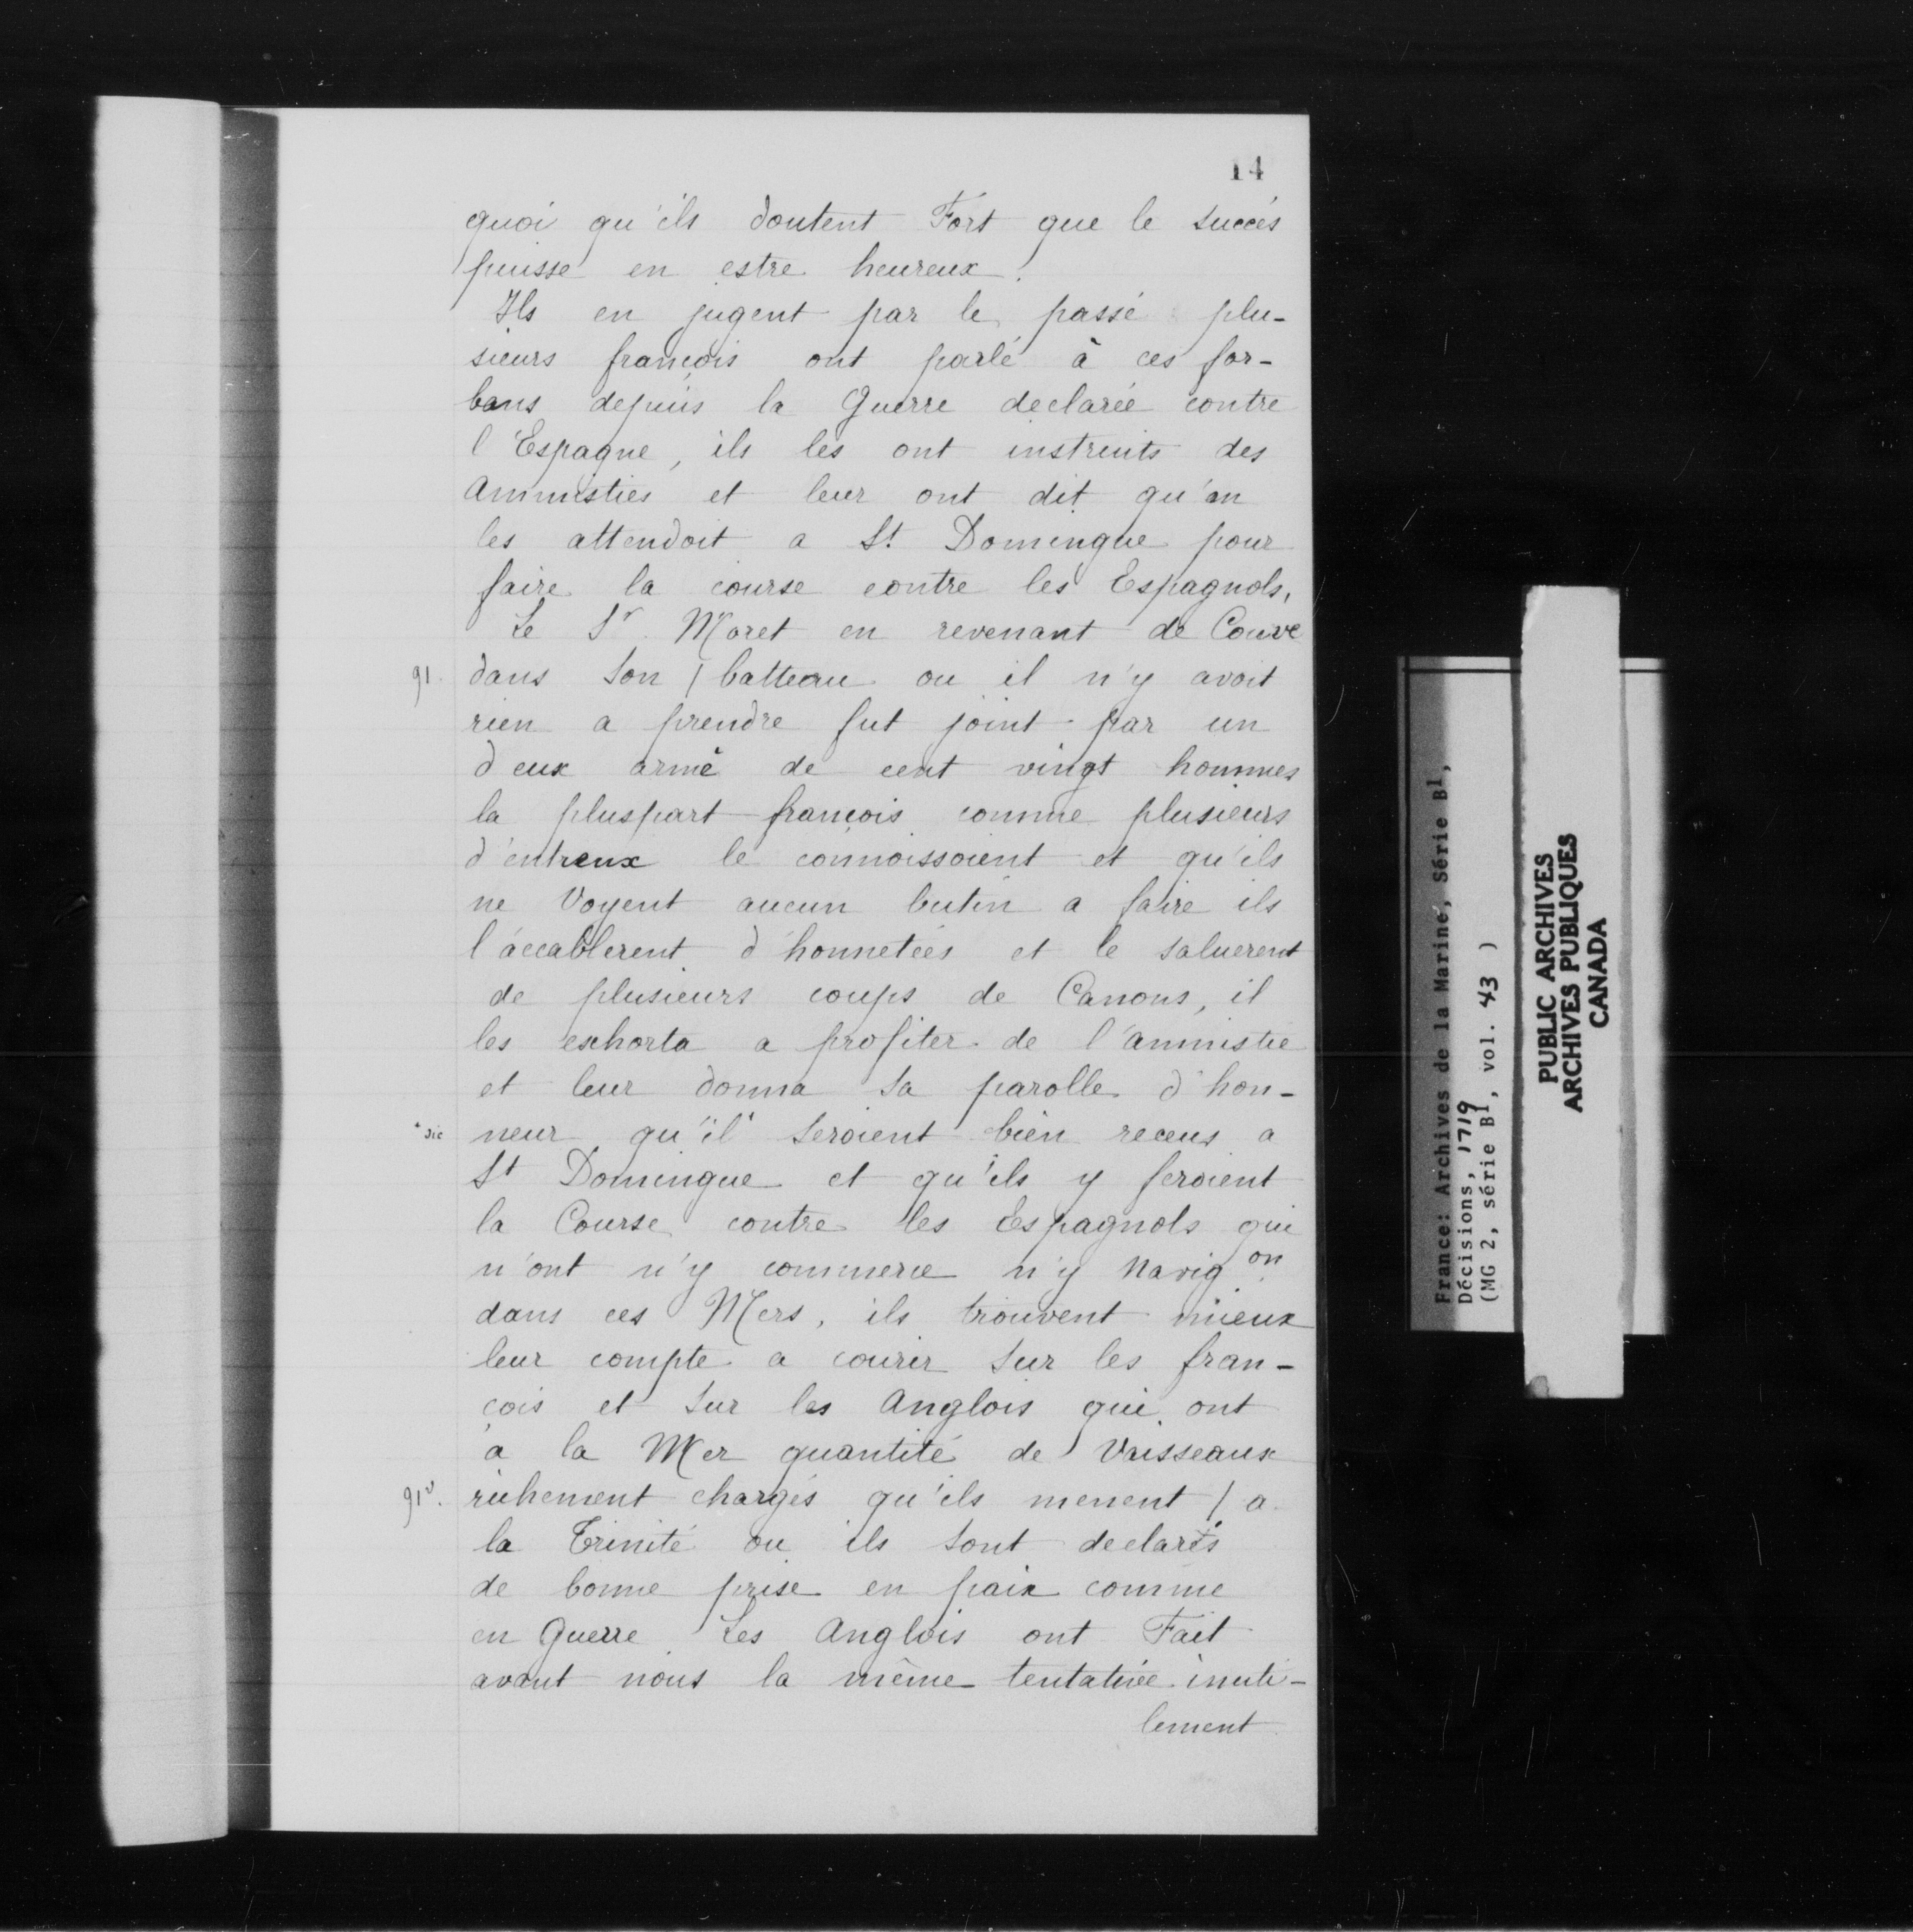 14
quoi qu'ils doutent Fort que le succés
puisse en estre heureux.
Ils en jugent par le passé plu-
sieurs françois ont parlé à ces for-
bans depuis la Guerre declarée contre
l'Espagne, ils les ont instruits des
Amnisties et leur ont dit qu'on
les attendoit a St Domingue pour
faire la course contre les Espagnols,
Le Sr Moret en revenant de Couve
91. dans son / batteau ou il n'y avoit
rien a prendre fut joint par un
d eux armé de cent vingt hommes
la pluspart françois comme plusieurs
d'entreux le connoissoient et qu'ils
ne Voyent aucun butin a faire ils
l'accablerent d'honnetées et le saluerent
de plusieurs coups de Canons, il
les exhorta a profiter de l'amnistie
et leur donna sa parolle d'hon-
+ sic neur qu'il+ seroient bien receus a
St Domingue et qu'ils y feroient
la Course contre les Espagnols qui
n'ont n'y commerce n'y Navigon
dans ces Mers, ils trouvent mieux
leur compte a courir sur les fran-
çois et sur les Anglois qui ont
a la Mer quantité de Vaisseaux
91v. richement chargés qu'ils menent / a
la Trinité ou ils sont declarés
de bonne prise en paix comme
en Guerre Les Anglois ont Fait
avant nous la même tentative inuti-
lement
France: Archives de la Marine, Série B1,
Décisions, 1719
(MG 2, série B1, vol. 43 )
PUBLIC ARCHIVES
ARCHIVES PUBLIQUES
CANADA